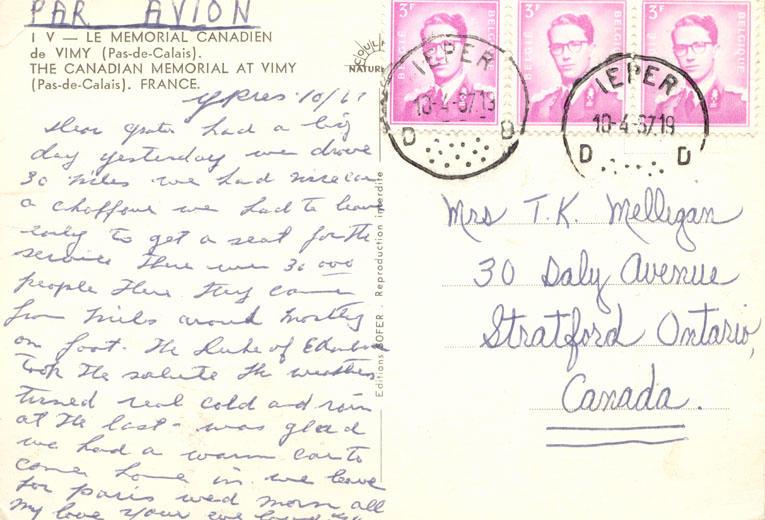 PAR AVION
I V — LE MEMORIAL CANADIEN
de VIMY (Pas-de-Calais).
THE CANADIAN MEMORIAL AT VIMY
(Pas-de-Calais). FRANCE.
Ypres. 10/67
Dear had a big
day yesterday we drove
30 miles we had car
a choffour we had to leave
early to get a seat for the
service there were 30 000
people there they came
from miles around mostly
on foot the Duke of
Took the salute the weather
turned real cold and rain
at the last - was glad
we had a warm car to
come home in. we leave
for paris wed morn all
my love your
Editions SOFER - Reproduction interdite
NATURE
3F BELGIE BELGIQUE
3F BELGIE BELGIQUE
3F BELGIE BELGIQUE
IEPER
10-4-67 19
D D
IEPER
10-4-67 19
D D
Mrs T.K. Melligan
30 Daly Avenue
Stratford Ontario,
Canada.